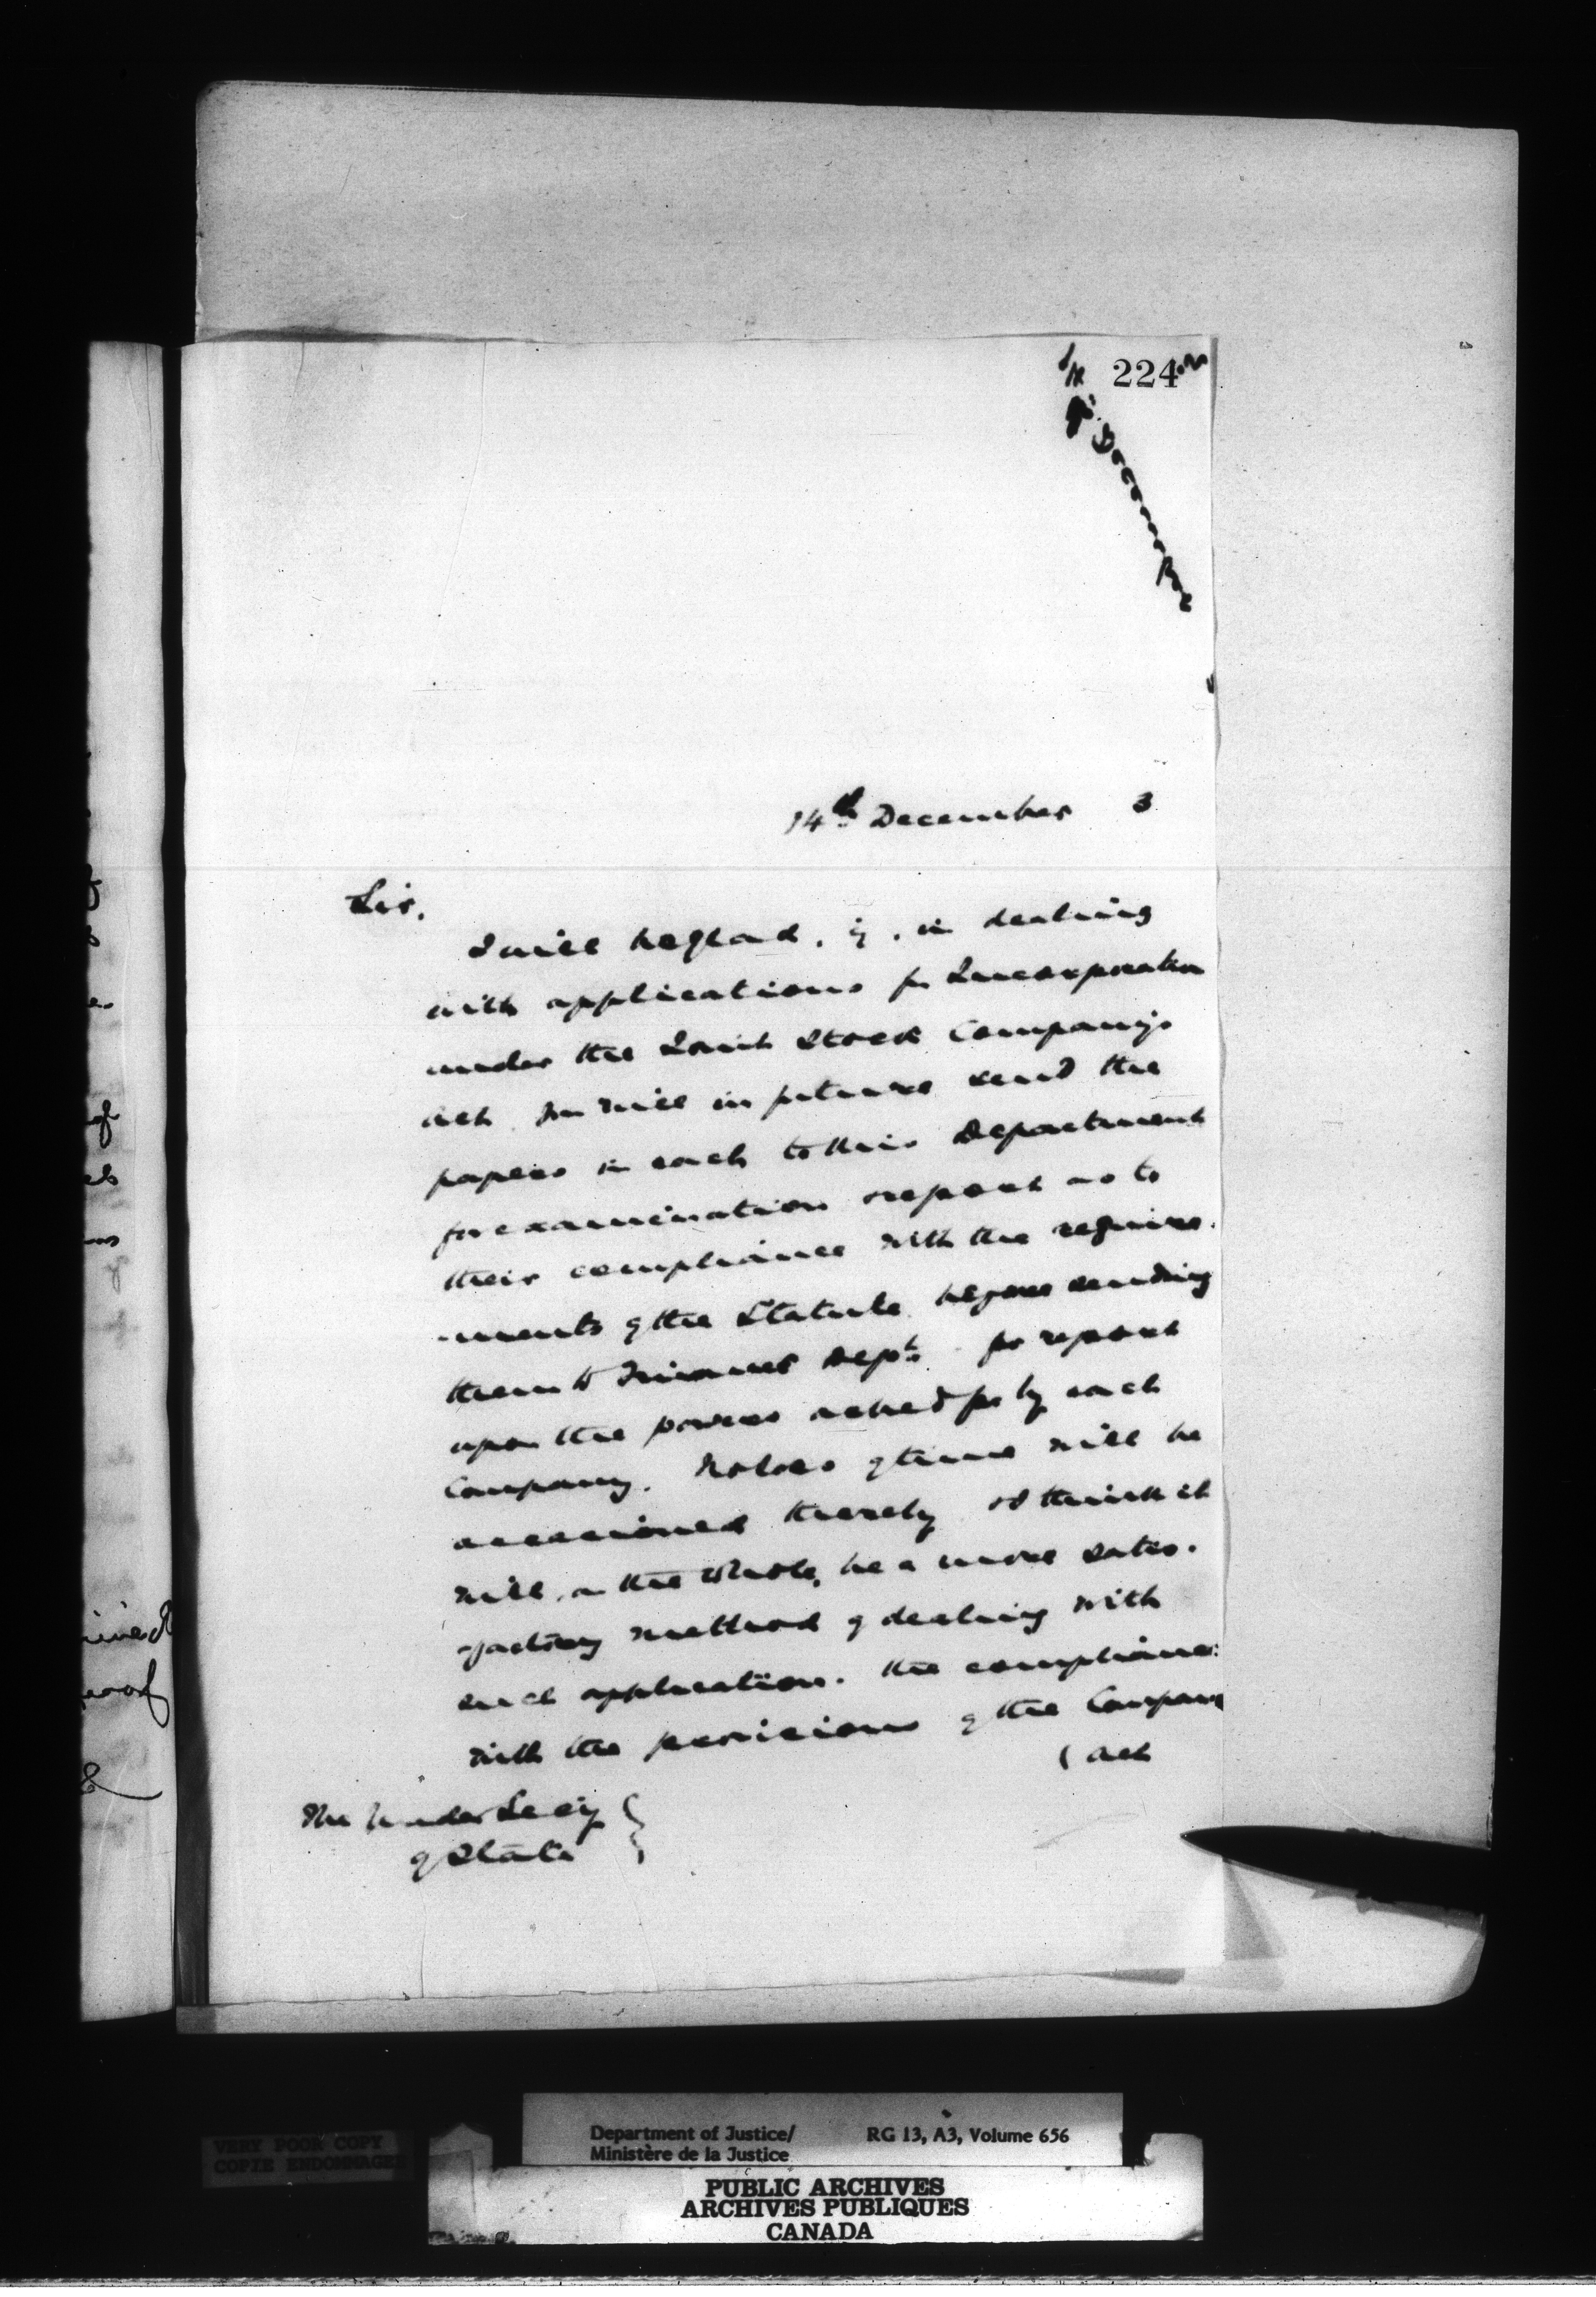 224
14th December 3
Sir,
I will be glad, if, in dealing
with applications for Incorporation
under the Joint Stock Companys
Act you will in future send the
papers in each to this Department
for examination & report as to
their compliance with the require-
-ments of the Statute before sending
them to Finance Dept. for report
upon the powers asked for by each
Company. No loss of time will be
occasioned thereby & I think it
will, on the whole, be a more satis-
-factory method of dealing with
such application. The compliance
with the provisions of the Company
(Act
The Under Secy
of State
of
inved
proof
VERY POOR COPY
COPIE ENDOMMAGEE
Department of Justice/ RG 13, A3, Volume 656
Ministère de la Justice
PUBLIC ARCHIVES
ARCHIVES PUBLIQUES
CANADA